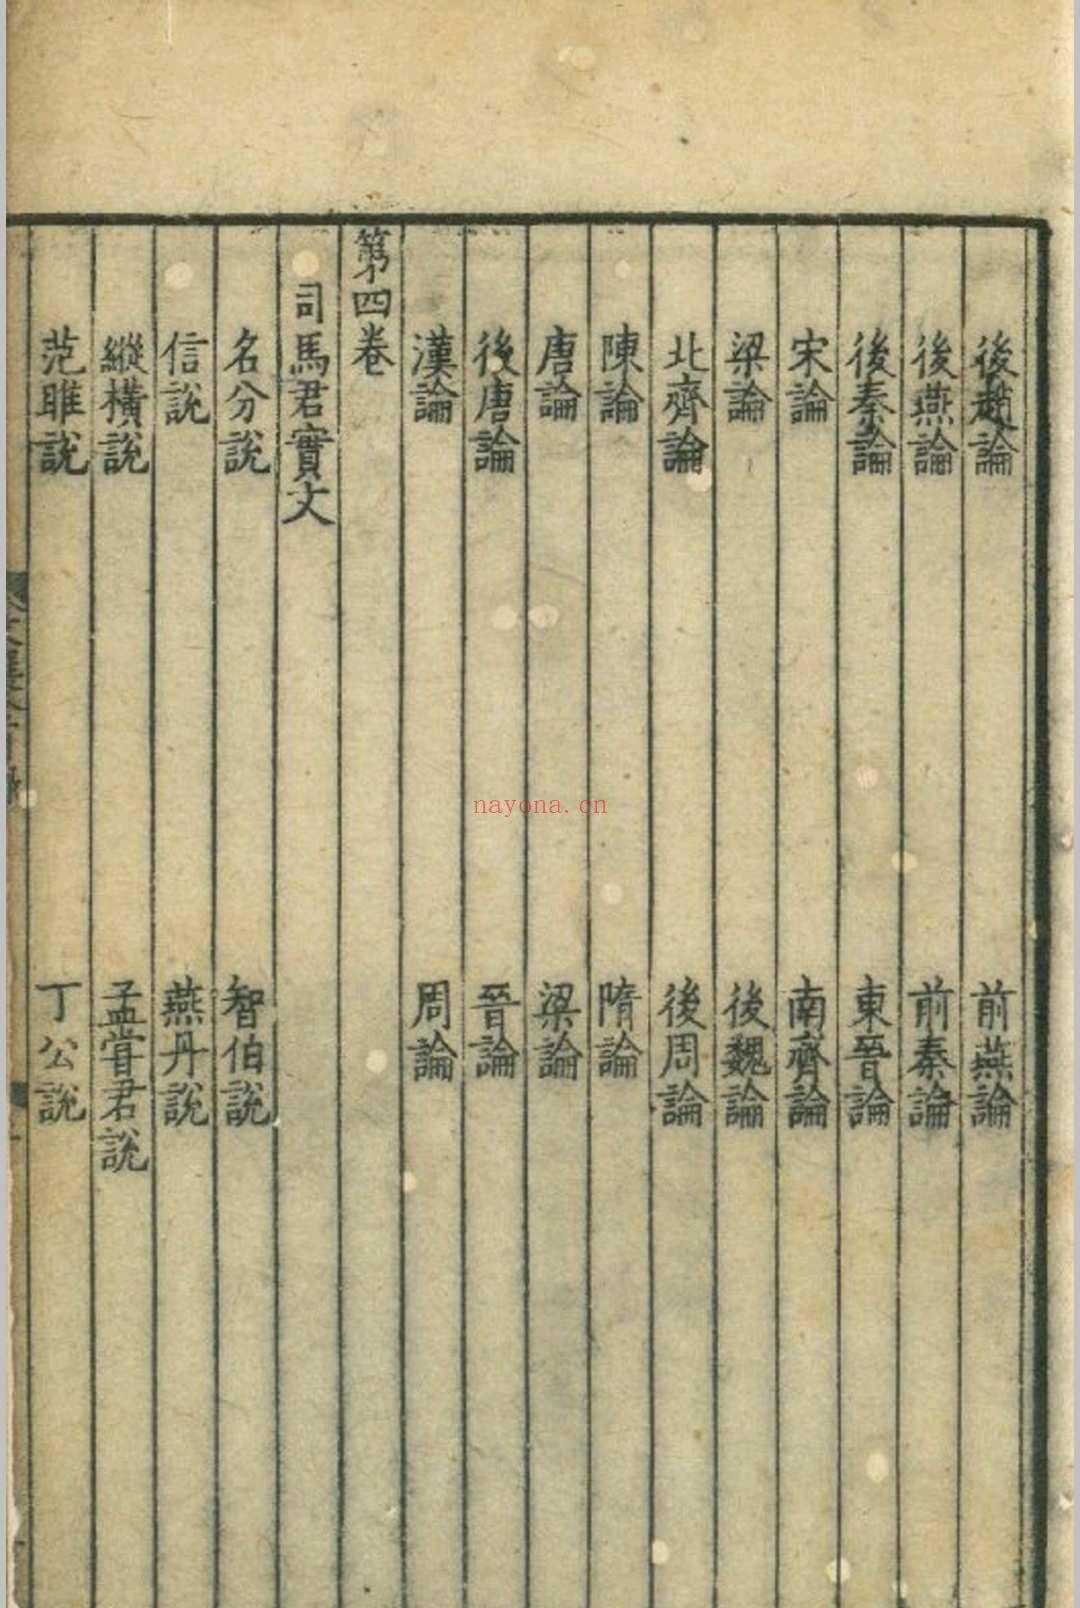 後趙論 前燕論
後燕論 前秦論
後秦論 東晉論
宋論 南齊論
梁論 後魏論
北齊論 後周論
陳論 隋論
唐論 梁論
後唐論 晉論
漢論 周論
第四卷
司馬君實文
名分說 智伯說
信說 燕丹說
縱橫說 孟嘗君說
范雎說 丁公說
nayona.cn